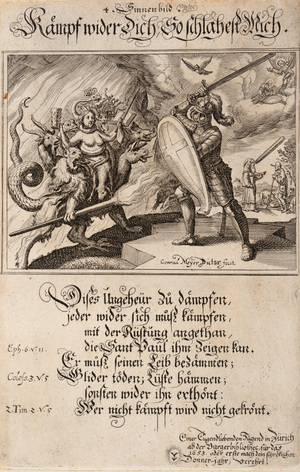 4 Sinnenbild
Kämpf wider Dich, So schlahest Mich.
Conrad Meyer Pictor fecit
Dises Ungeheür zu dämpfen,
jeder wider sich muß kämpfen,
mit der Rüstung angethan
Eph. 6. v. 11. die Sant Paul ihm zeigen kan.
Er muß seinen Leib bezämmen;
Coloss. 3. v. 5 Glider töden; Lüste hämmen;
sonsten wider ihn erthönt:
2. Tim. 2. v. 5 Wer nicht kämpft wird nicht gekrönt.
Einer Tugendliebenden Jugend in Zürich
ab der Burgerbibliothec, für das
1653. oder erste nach dem schröklichen
Donner-jahr, verehret!